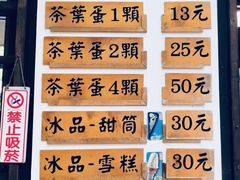 茶葉蛋1顆 13元
茶葉蛋2顆 25元
茶葉蛋4顆 50元
冰品-甜筒 30元
冰品-雪糕 30元
禁止吸菸